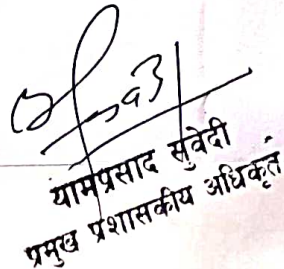 यामप्रसाद सुवेदी
प्रमुख प्रशासकीय अधिकृत